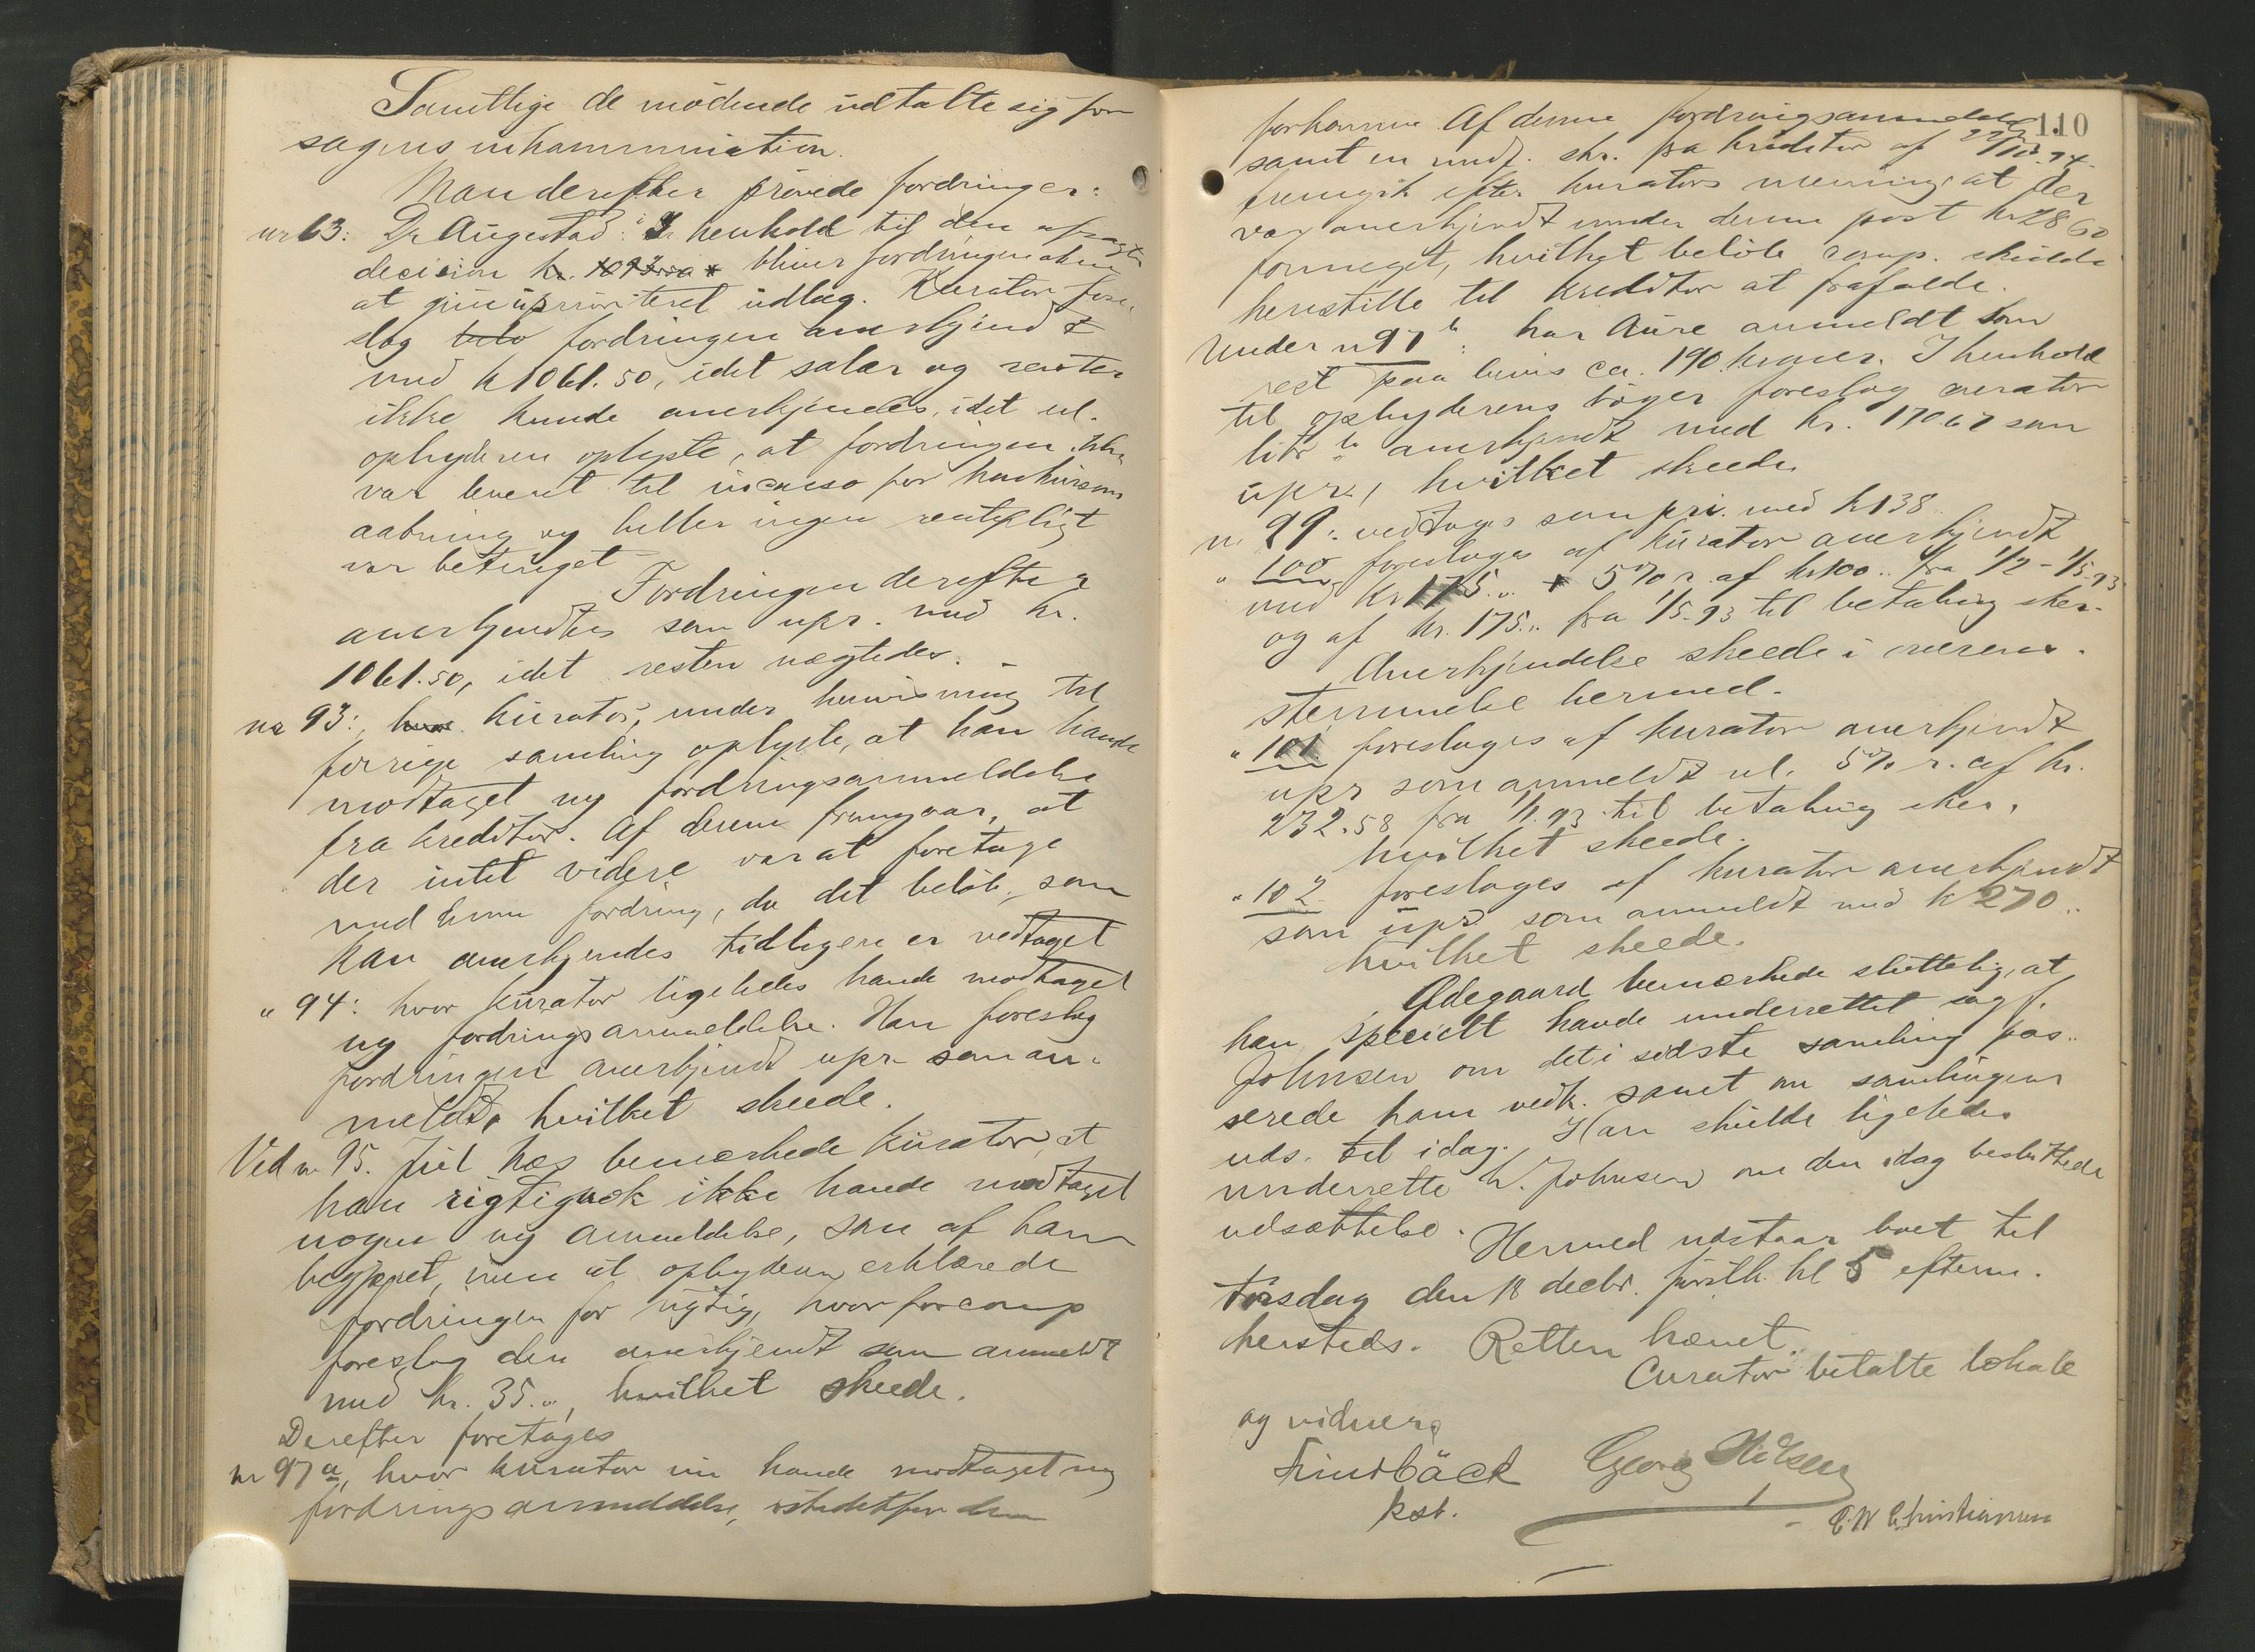 Samtlige de mødende udtalte sig for
sagens inkammination.
Man derefter prøvede fordringer:
nr 63: Dr Augestad: I henhold til den afsagte
decision bliver fordringen
at give uprioriteret udlæg. Kurator fore-
slog fordringen anerkjendt
med kr 1061.50, idet salær og renter
ikke kunde anerkjendes, idet
opbyderen oplyste, at fordringen ikke
var leveret til incasso før konkursens
aabning og heller ingen rentepligt
var betinget
Fordringen derefter
anerkjendtes som upr. med kr.
1061.50, idet resten nægtedes. -
nr 93: kurator, under henvisning til
forrige samling oplyste, at han havde
modtaget ny fordringsanmeldelse
fra kreditor. Af denne fremgaar, at
der intet videre var at foretage
med hans fordring, da det beløb, som
kan anerkjendes tidligere er vedtaget
" 94: hvor kurator ligeledes havde modtaget
ny fordringsanmeldelse. Han foreslog
fordringen anerkjendt upr som an-
meldt, hvilket skeede.
Ved nr 95. Juel Næs bemærkede kurator, at
han rigtignok ikke havde modtaget
nogen ny anmeldelse, som af ham
begjæret, men at opbyderen erklærede
fordringen for rigtig, hvorfor comp
foreslog den anerkjendt som anmeldt
med kr. 35.., hvilket skeede.
Derefter foretoges
nr 97 a, hvor kurator nu havde modtaget ny
fordringsanmeldelse, istedetfor den
110
forkomne. Af denne fordringsanmeldelse
samt en skr. fra kreditor af
fremgik efter kurators mening at der
var anerkjendt under denne post kr 28 60
formeget, hvilket beløb comp. skulde
henstille til kreditor at frafalde.
Under nr 97 b: har Aure anmeldt som
rest paa bevis ca. 190 kroner. I henhold
til opbyderens bøger foreslog curator
litr b anerkjendt med kr. 170.67 som
upr., hvilket skeede
nr 99: vedtages som pri. med kr 138..
" 100 foreslages af kurator anerkjendt
med kr 175.. + 5% r. af kr 100.. fra 1/2 - 1/5-93
og af kr. 175.. fra 1/5-93 til betaling sker.
Anerkjendelse skeede i overens-
stemmelse hermed.
" 101 foreslages af kurator anerkjendt
upr som anmeldt 5% r. af kr.
232.58 fra 1/1.93 til betaling sker,
hvilket skeede.
" 102 foreslages af kurator anerkjendt
som upr som anmeldt med kr 270..
hvilket skeede.
Ødegaard bemærkede sluttelig, at
han specielt havde underrettet sagf.
Johnsen om det i sidste samling pas-
serede ham vedk. samt om samlingens
uds. til idag. Han skulde ligeledes
underrette Johnsen om den idag besluttede
udsættelse. Hermed udstaar boet til
torsdag den 18 decbr. førstk. kl 5 efterm.
hersteds. Retten hævet.
Curator betalte lokale
og vidner.
Lindbäck Georg Nilsen
kst. C. W Christiansen